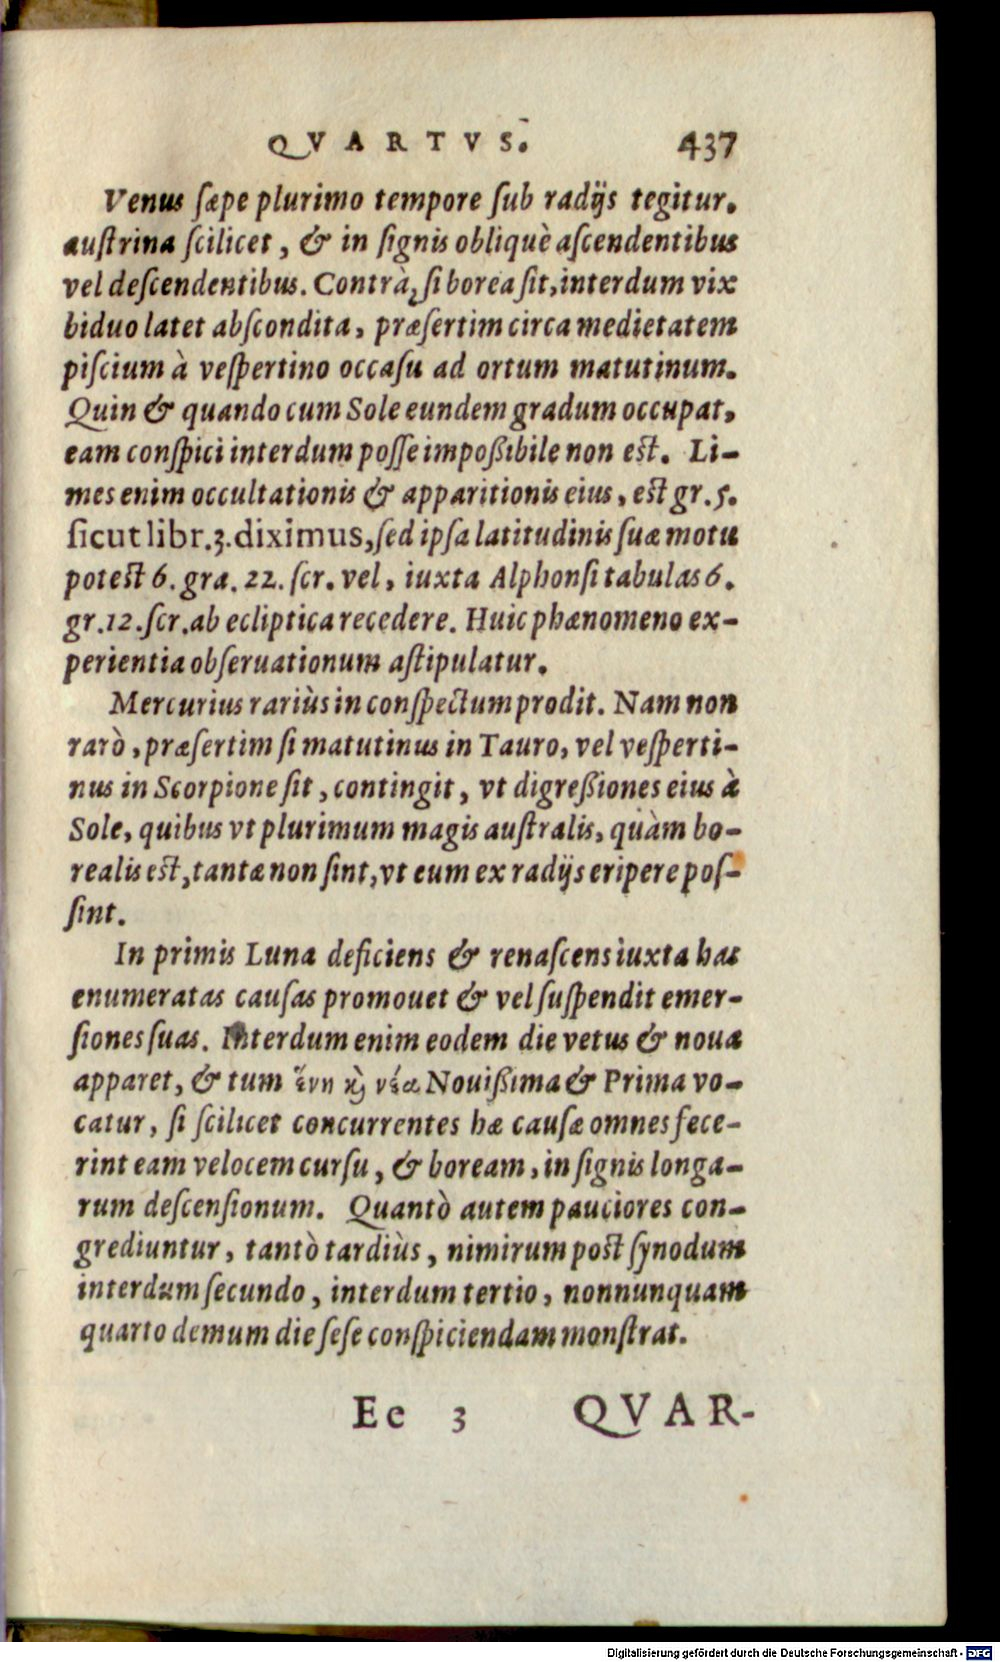 QVARTVS. 437
Venus sæpe plurimo tempore sub radijs tegitur.
austrina scilicet, & in signis obliquè ascendentibus
vel descendentibus. Contrà, si borea sit, interdum vix
biduo latet abscondita, præsertim circa medietatem
piscium à vespertino occasu ad ortum matutinum.
Quin & quando cum Sole eundem gradum occupat,
eam conspici interdum posse impoßibile non est. Li-
mes enim occultationis & apparitionis eius, est gr. 5.
sicut libr. 3. diximus, sed ipsa latitudinis suæ motu
potest 6. gra. 22. scr. vel, iuxta Alphonsi tabulas 6.
gr. 12. scr. ab ecliptica recedere. Huic phænomeno ex-
perientia obseruationum astipulatur.
Mercurius rariùs in conspectum prodit. Nam non
rarò, præsertim si matutinus in Tauro, vel vesperti-
nus in Scorpione sit, contingit, vt digreßiones eius à
Sole, quibus vt plurimum magis australis, quàm bo-
realis est, tantæ non sint, vt eum ex radijs eripere pos-
sint.
In primis Luna deficiens & renascens iuxta has
enumeratas causas promouet & vel suspendit emer-
siones suas. Interdum enim eodem die vetus & noua
apparet, & tum ἕνη καὶ νέα Nouißima & Prima vo-
catur, si scilicet concurrentes hæ causæ omnes fece-
rint eam velocem cursu, & boream, in signis longa-
rum descensionum. Quantò autem pauciores con-
grediuntur, tantò tardiùs, nimirum post synodum
interdum secundo, interdum tertio, nonnunquam
quarto demum die sese conspiciendam monstrat.
Ee 3 QVAR-
Digitalisierung gefördert durch die Deutsche Forschungsgemeinschaft - DFG